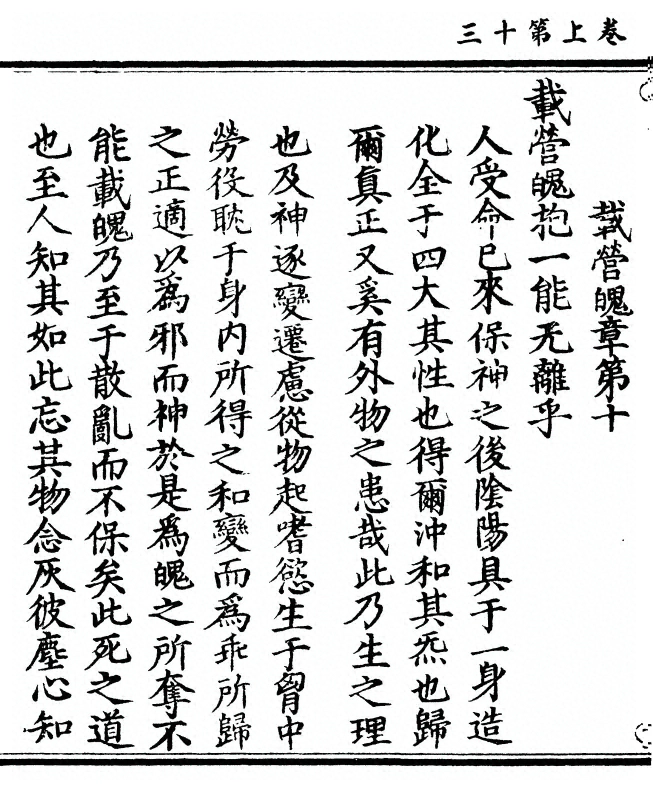 卷上第十三
載營魄章第十
載營魄抱一能无離乎
人受命已來保神之後陰陽具于一身造
化全于四大其性也得爾沖和其炁也歸
爾真正又奚有外物之患哉此乃生之理
也及神逐變遷慮從物起嗜慾生于胷中
勞役耽于身内所得之和變而為乖所歸
之正適以為邪而神於是為魄之所奪不
能載魄乃至于散亂而不保矣此死之道
也至人知其如此忘其物念灰彼塵心知